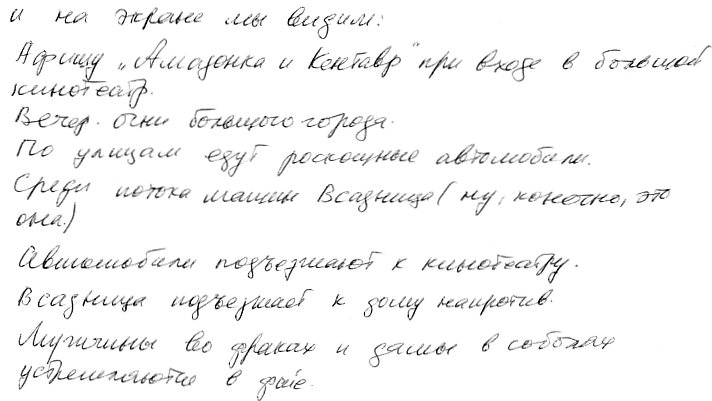 и на экране мы видим:
Афишу „Амазонка и Кентавр" при входе в большой
кинотеатр.
Вечер. огни большого города.
По улицам едут роскошные автомобили.
Среди потока машин Всадница (ну, конечно, это
она.)
Автомобили подъезжают к кинотеатру.
Всадница подъезжает к дому напротив.
Мужчины во фраках и дамы в соболях
устремляются в фойе.